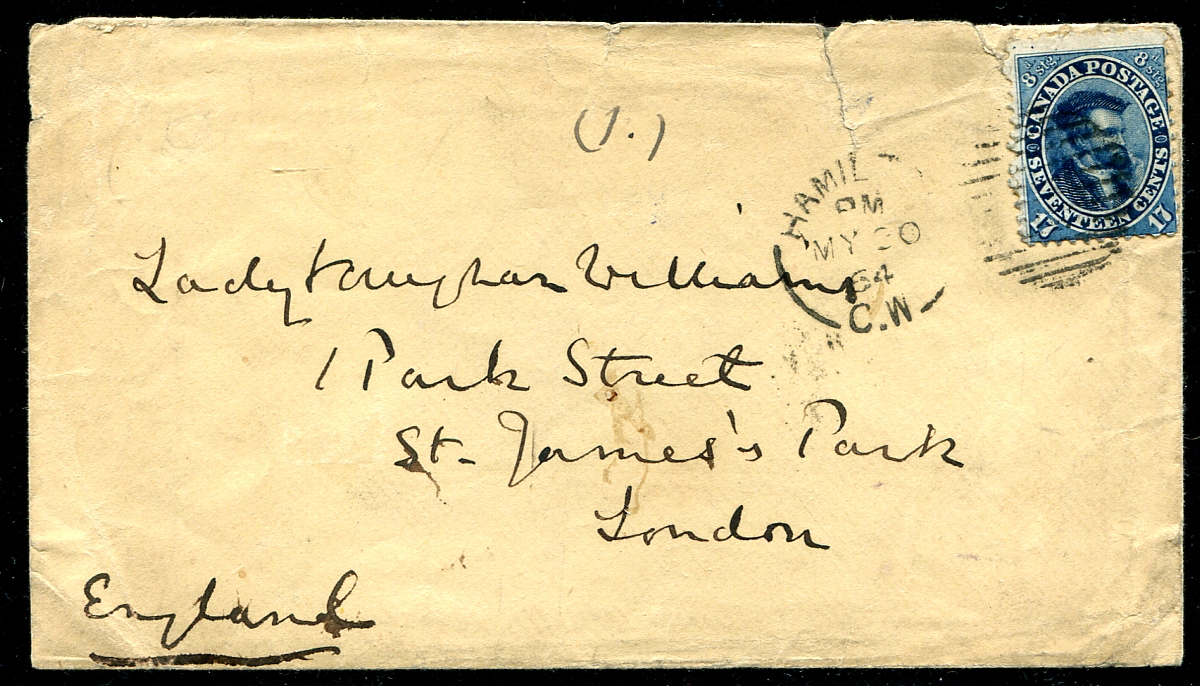 8 d stg. CANADA POSTAGE 8 d stg.
SEVENTEEN CENTS
17 17
(1.)
HAMIL
PM
MY 20
64
C.W
Lady Vaughan Williams
1 Park Street
St. James's Park
London
England